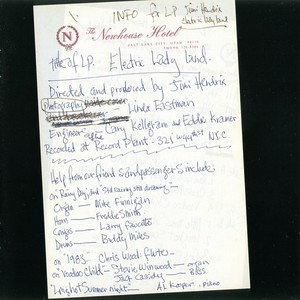 INFO for LP Jimi Hendrix
electric lady land
The Newhouse Hotel
SALT LAKE CITY, UTAH
title of LP. Electric Lady Land.
Directed and produced by Jimi Hendrix
photography
Linda Eastman
Engineer Gary Kellgram and Eddie Kramer
Recorded at Record Plant. 321 N.Y.C
Help from our friends and passengers includes
on "Rainy Day," and "Still raining still dreaming" -
Organ - Mike Finnigan
Horn - Freddie Smith
Congas - Larry Faucette
Drums - Buddy Miles
on "1983" - Chris Wood. flute -
on Voodoo Child - Stevie Winwood - organ
Jack Cassidy - Bass
"Long hot Summer Night" - Al Kooper - piano